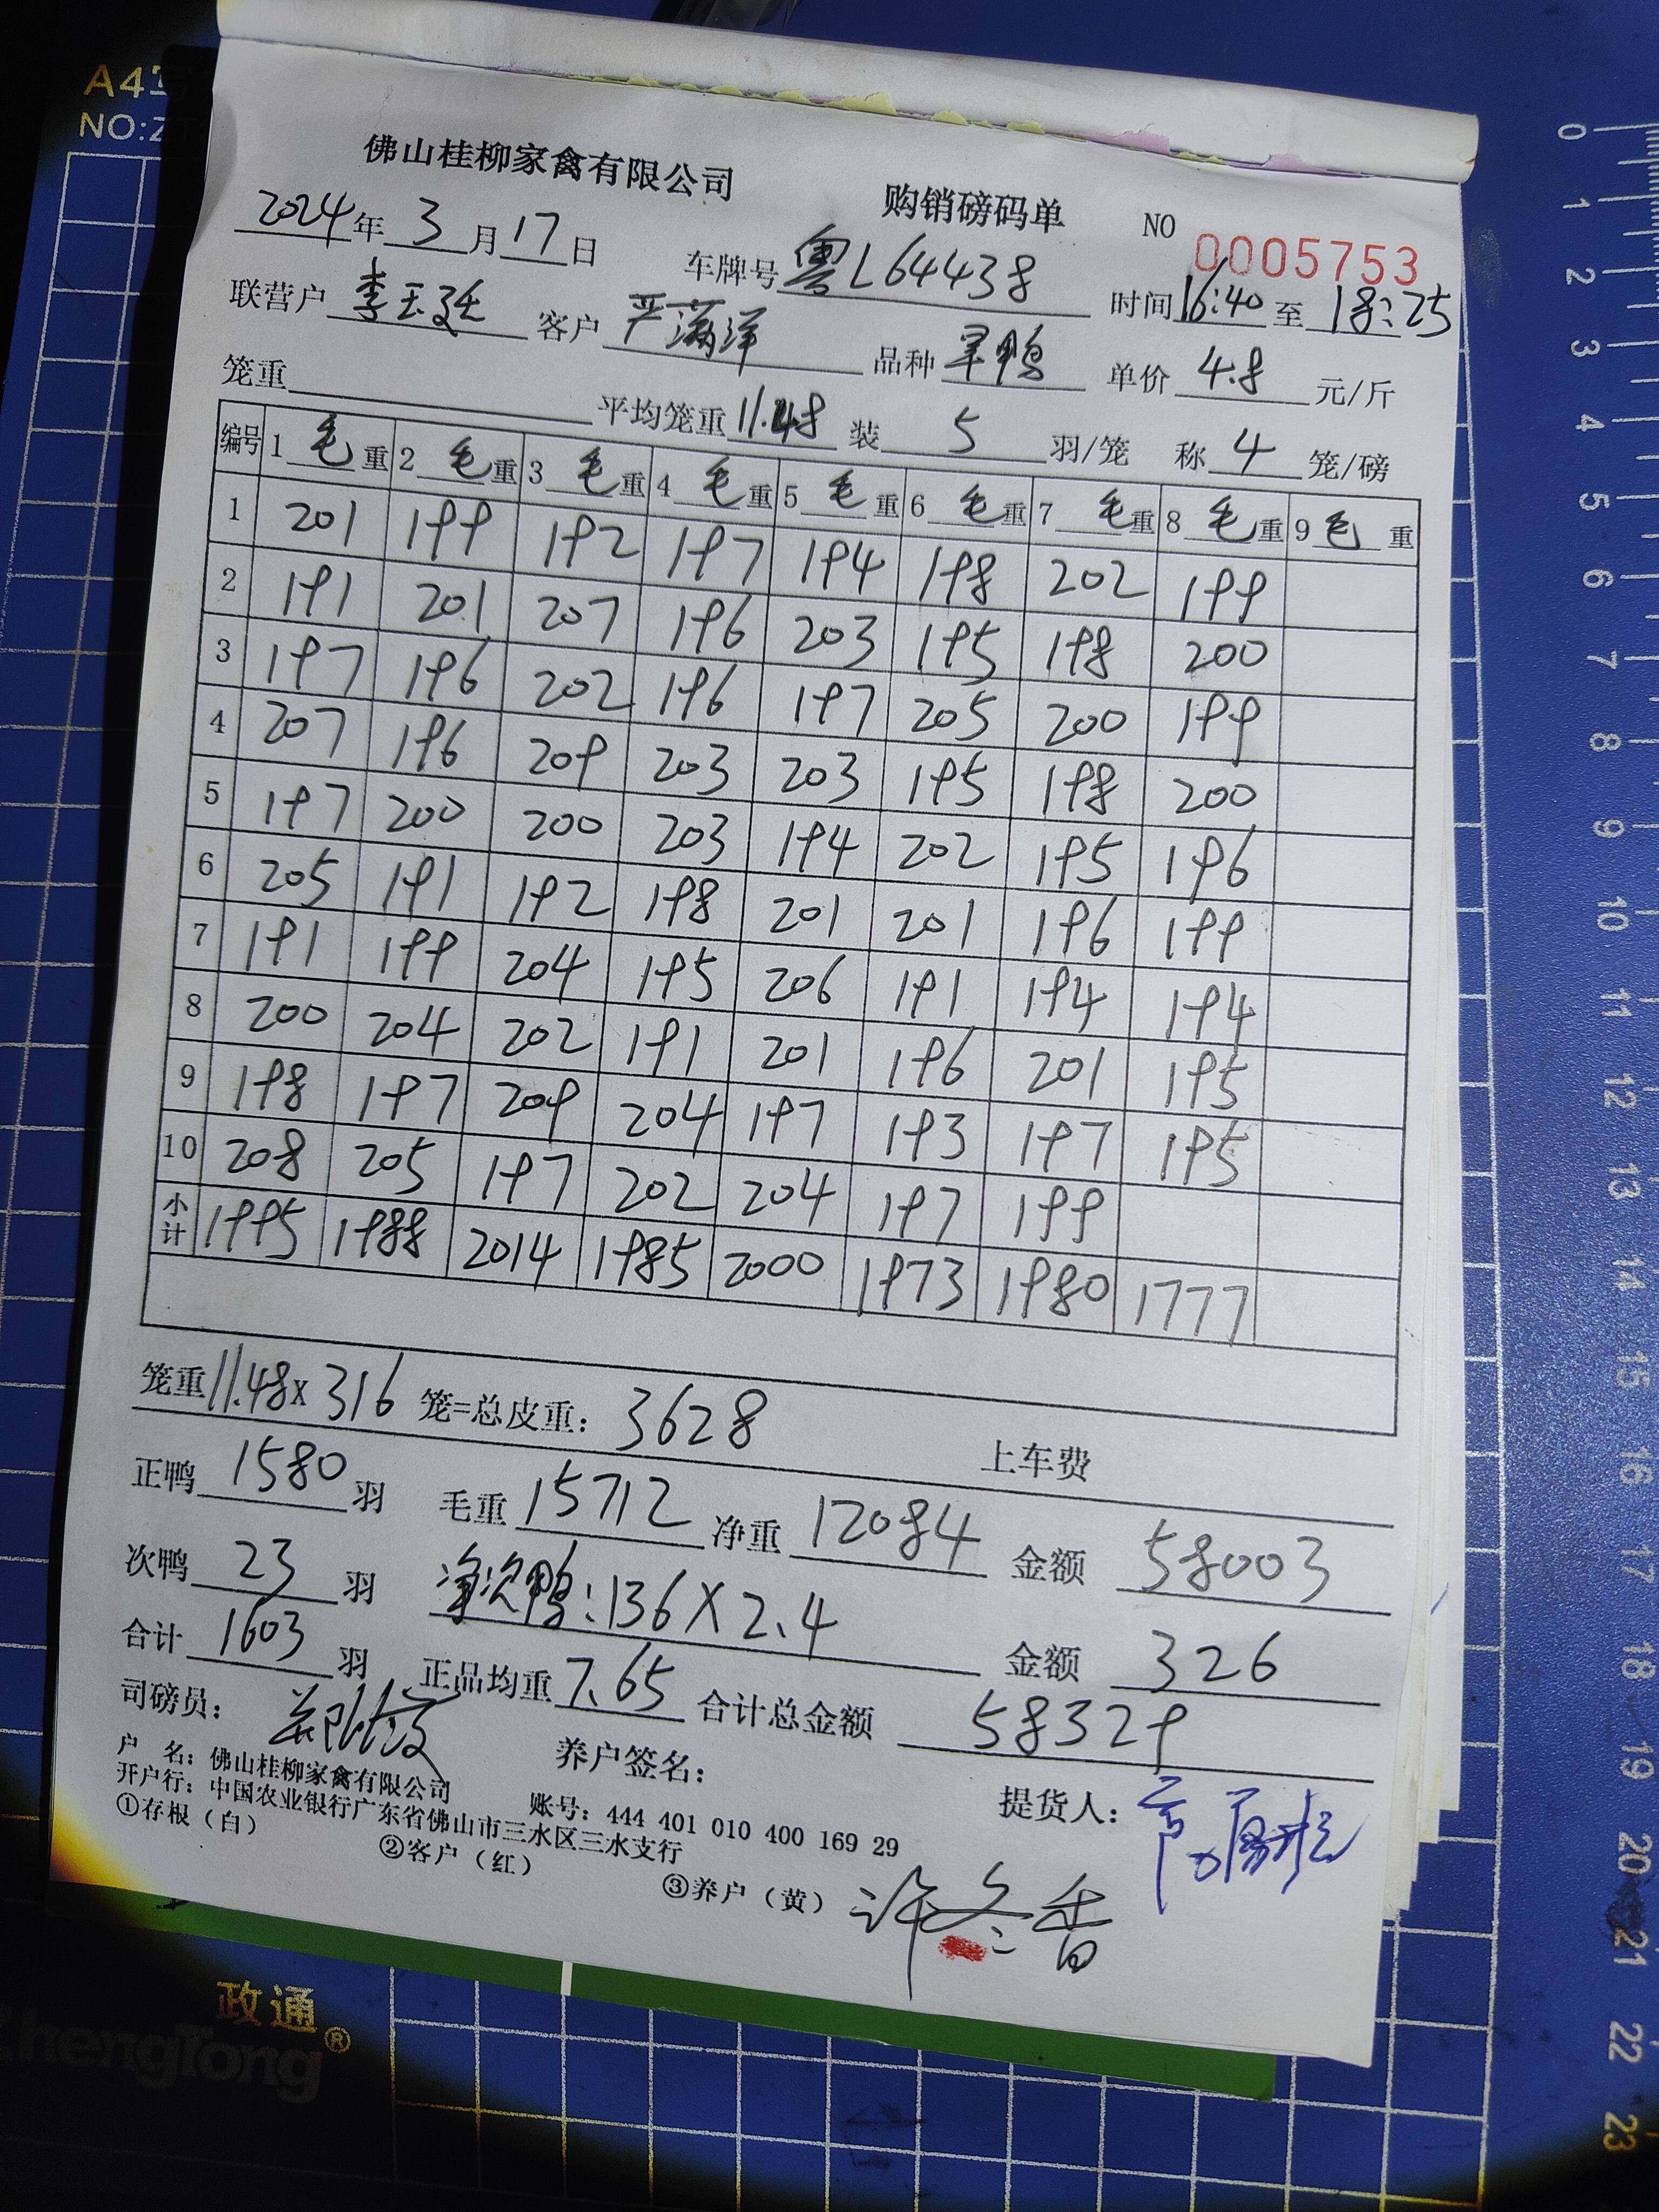 A4
NO:Z
佛山桂柳家禽有限公司 购销磅码单 NO 0005753
2024年3月17日 车牌号粤L64438 时间16:40至18:25
联营户 李玉廷 客户 严满洋 品种 旱鸭 单价 4.8 元/斤
笼重 平均笼重11.48 装 5 羽/笼 称 4 笼/磅
编号 1毛重 2毛重 3毛重 4毛重 5毛重 6毛重 7毛重 8毛重 9毛重
1 201 199 192 197 194 198 202 199
2 191 201 207 196 203 195 198 200
3 197 196 202 196 197 205 200 199
4 207 196 209 203 203 195 198 200
5 197 200 200 203 194 202 195 196
6 205 191 192 198 201 201 196 199
7 191 199 204 195 206 191 194 194
8 200 204 202 191 201 196 201 195
9 198 197 209 204 197 193 197 195
10 208 205 197 202 204 197 199
小计 1995 1988 2014 1985 2000 1973 1980 1777
笼重11.48x316 笼=总皮重：3628 上车费
正鸭 1580 羽 毛重 15712 净重 12084 金额 58003
次鸭 23 羽 净次鸭：136X2.4 金额 326
合计 1603 羽 正品均重 7.65 合计总金额 58329
司磅员： 养户签名： 提货人：
户 名：佛山桂柳家禽有限公司 账号：444 401 010 400 169 29
开户行：中国农业银行广东省佛山市三水区三水支行
①存根（白） ②客户（红） ③养户（黄） 许冬香
政通®
ZhengTong
0
1
2
3
4
5
6
7
8
9
10
11
12
13
14
15
16
17
18
19
20
21
22
23